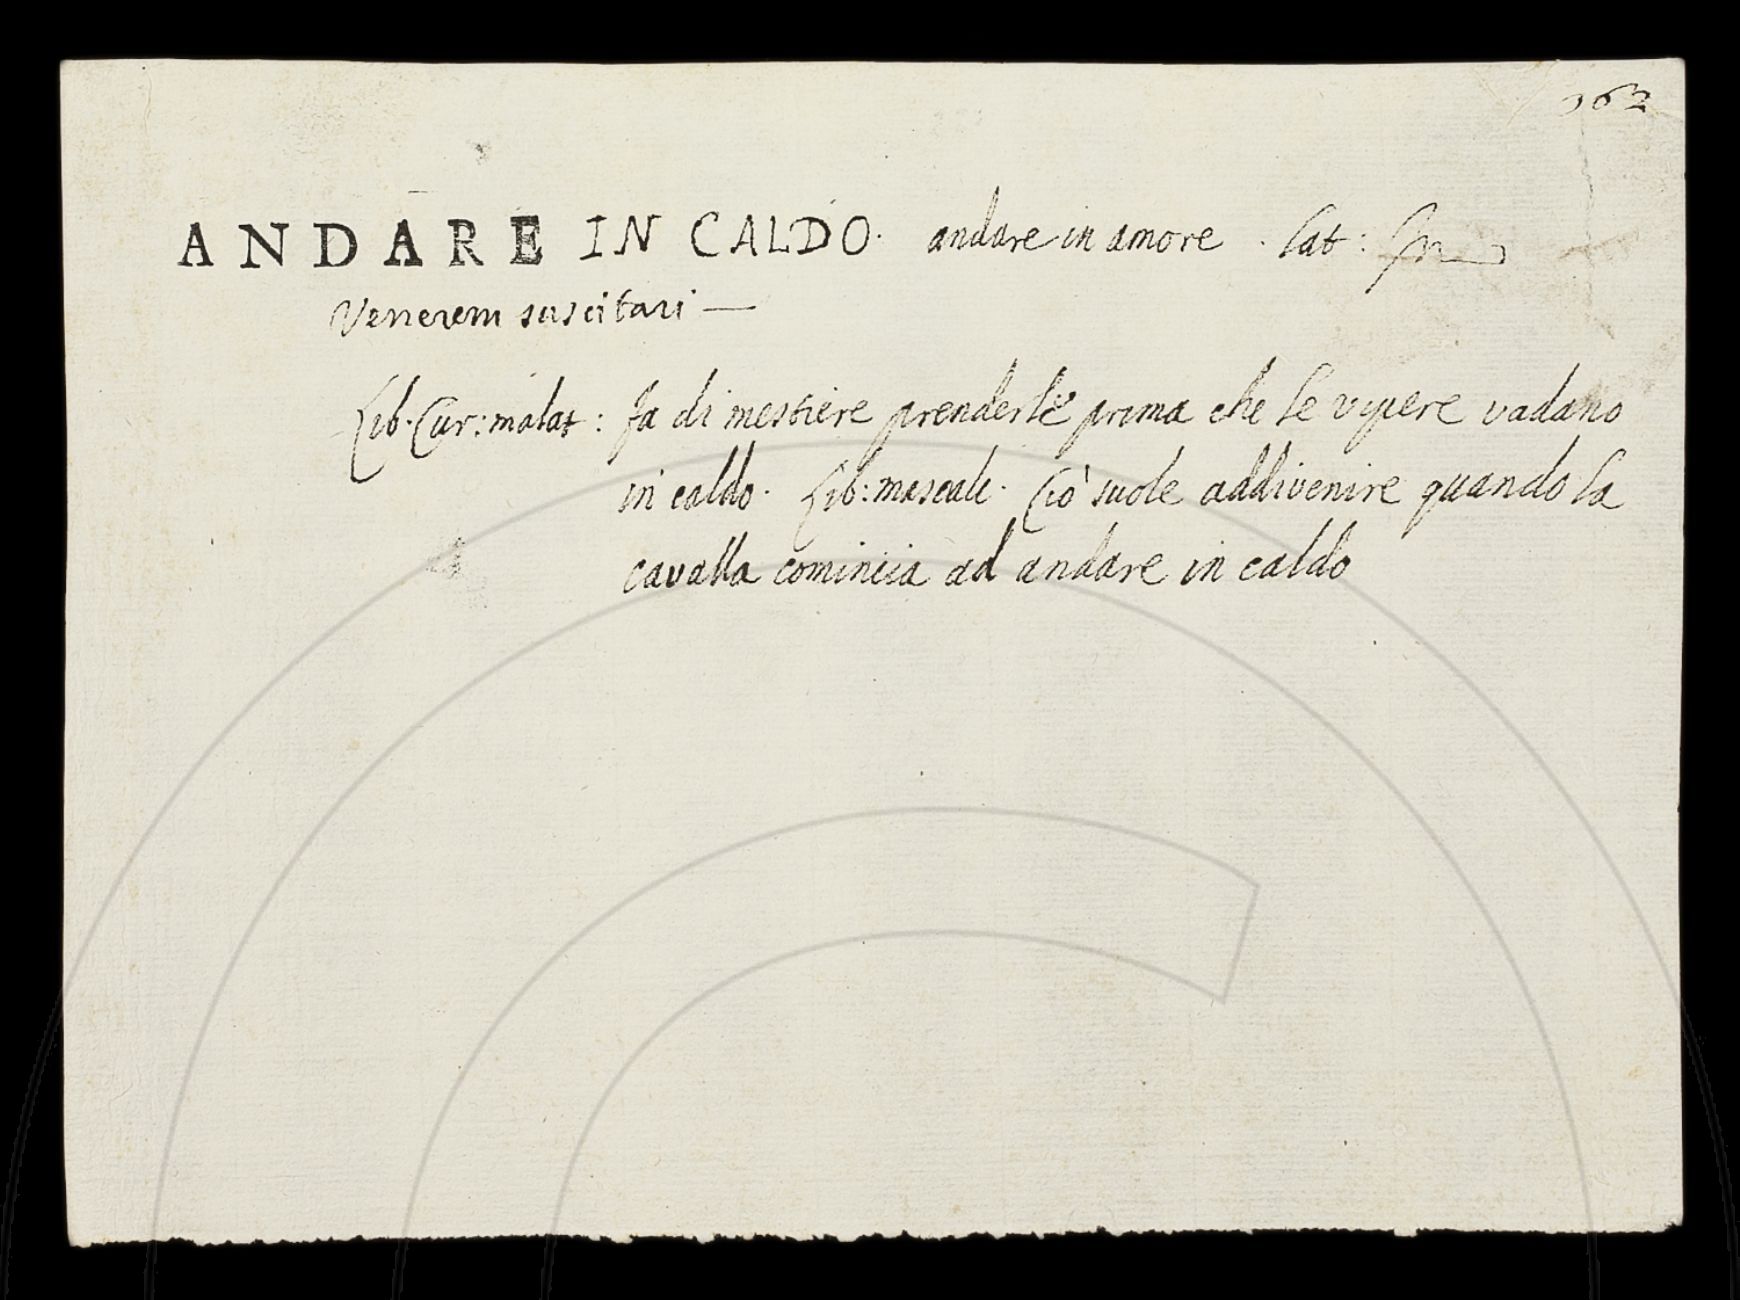 362
ANDARE IN CALDO. andare in amore. Lat: In
Venerem suscitari —
Lib. Cur: malat: Fa di mestiere prenderle prima che le vipere vadano
in caldo. Lib: mascalc. Ciò suole addivenire quando la
cavalla comincia ad andare in caldo